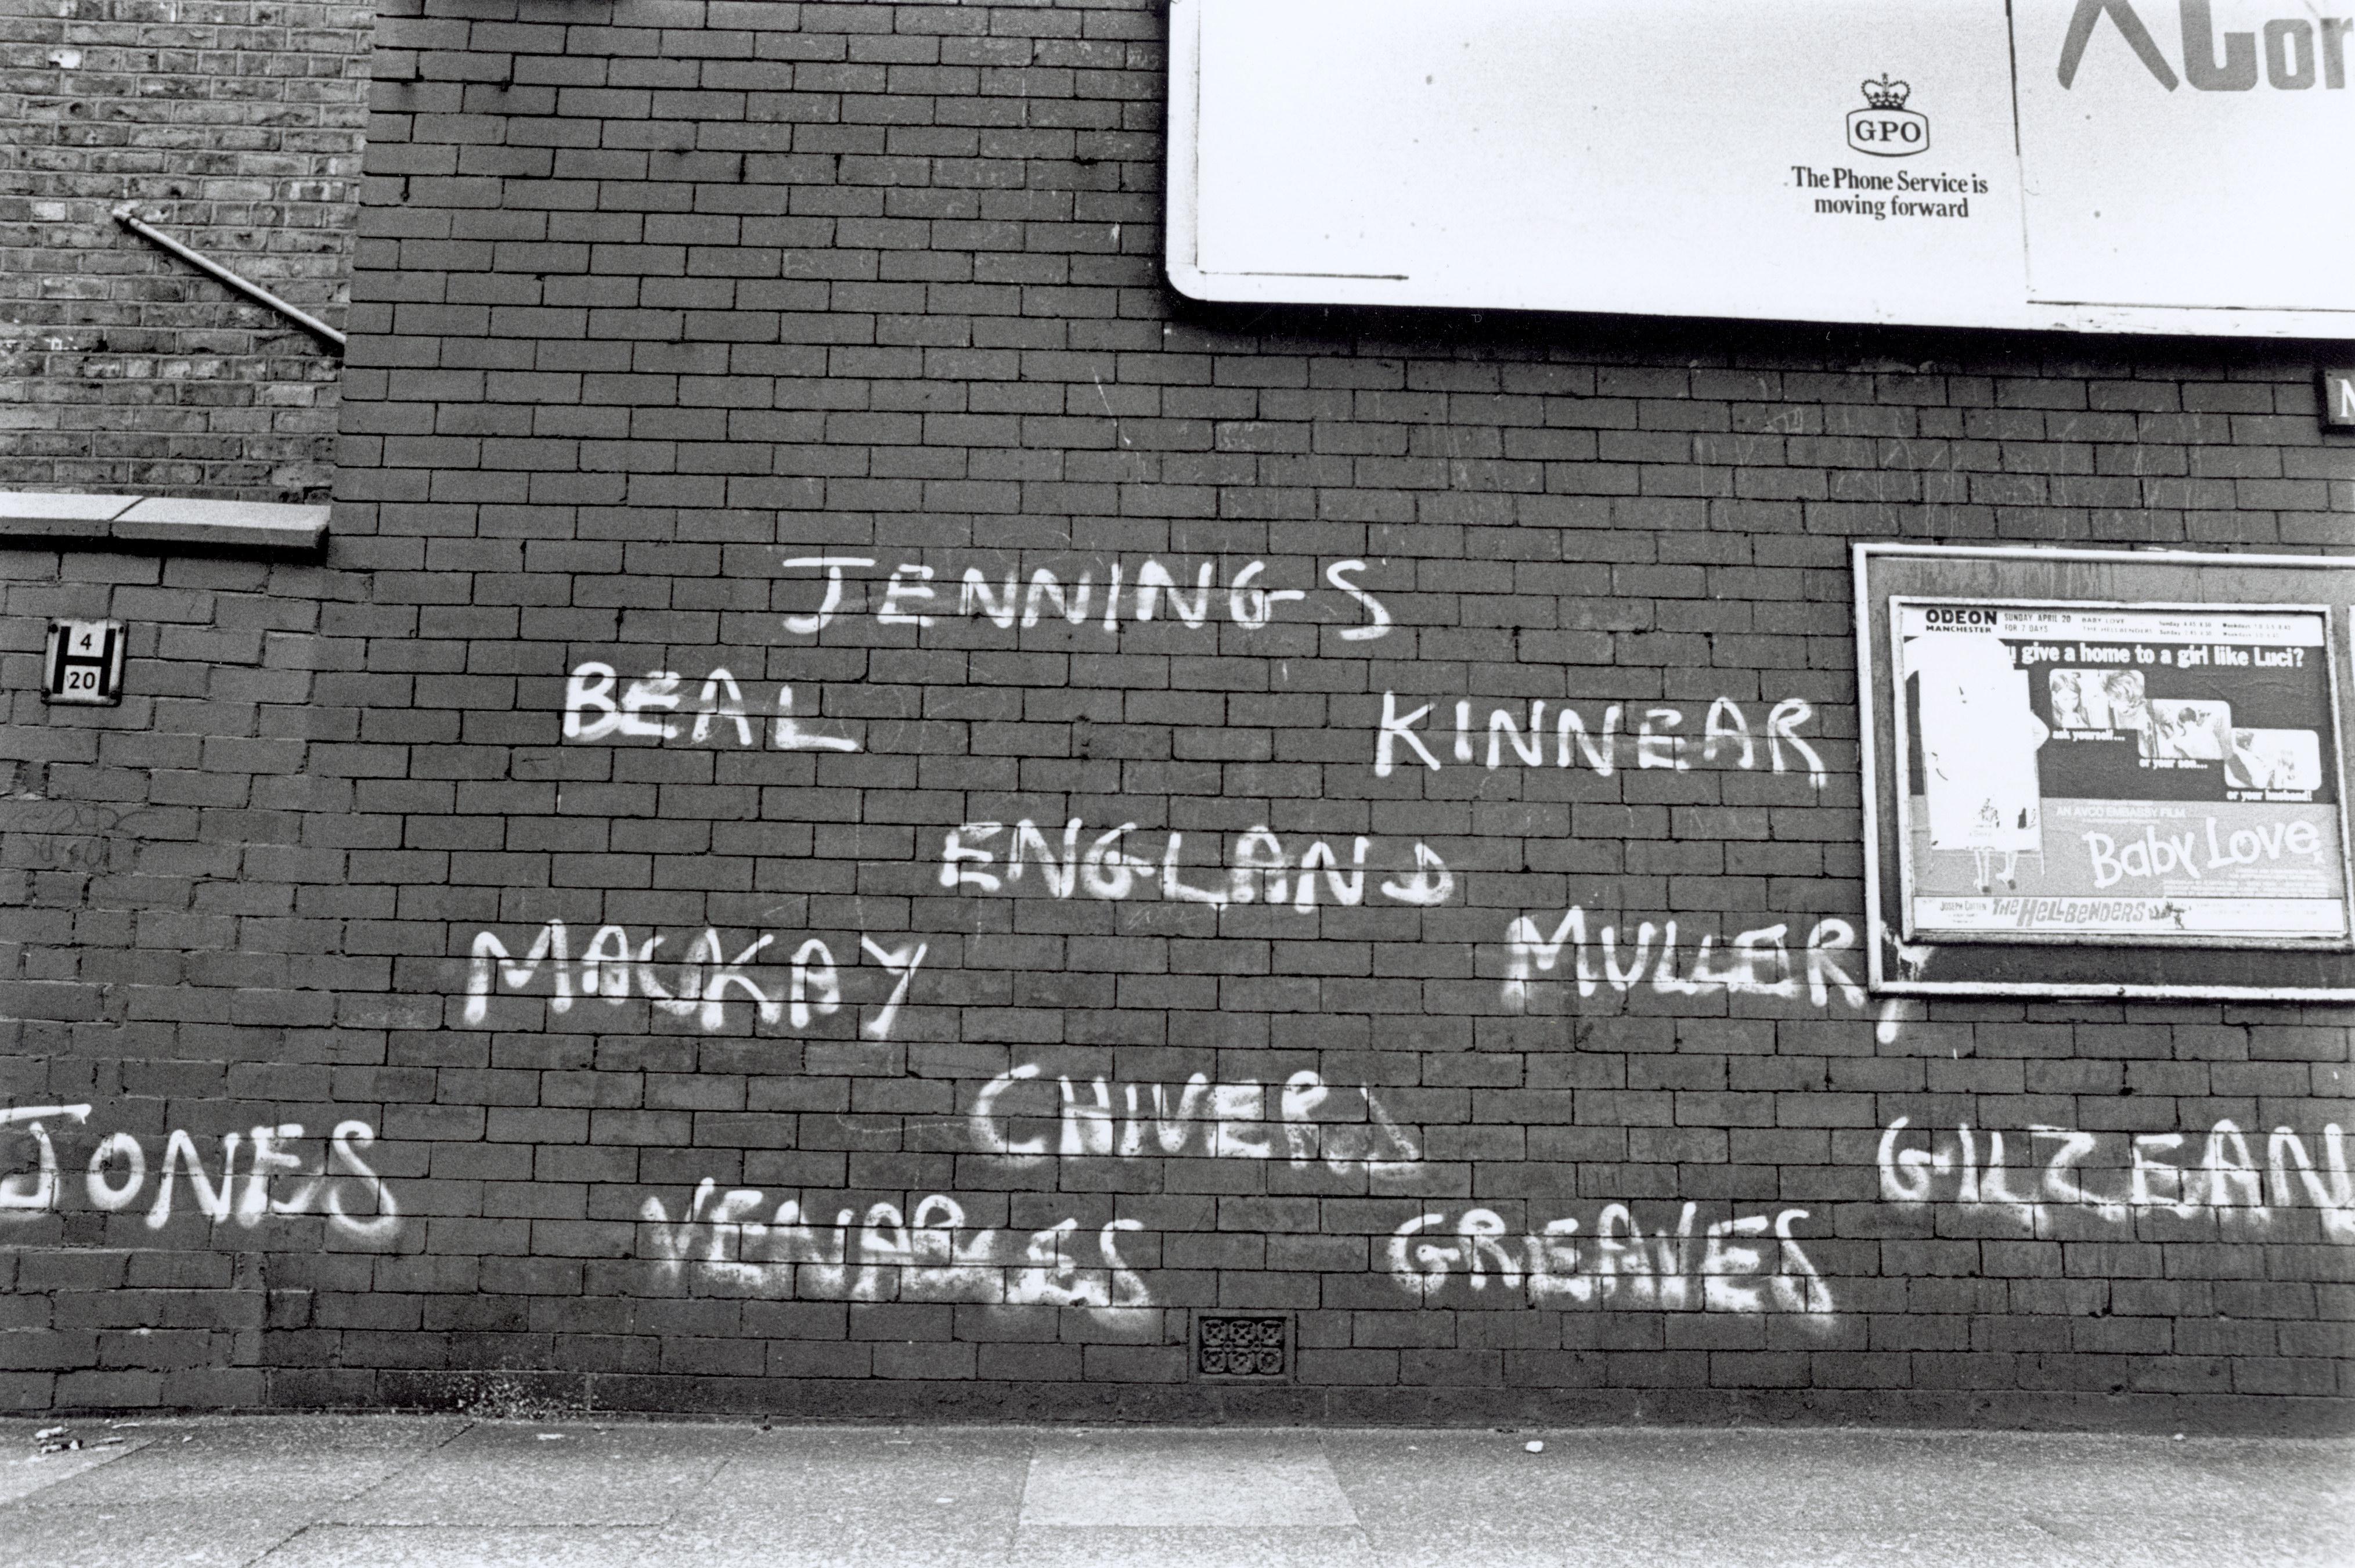 Cor
GPO
The Phone Service is
moving forward
JENNINGS
BEAL
KINNEAR
ENGLAND
MACKAY
MULLER
CHIVERS
JONES
GILZEAN
VENABLES
GREAVES
4
H
20
ODEON
MANCHESTER
SUNDAY APRIL 20
FOR 7 DAYS
BABY LOVE
THE HELLBENDERS
give a home to a girl like Luci?
ask yourself...
or your son...
or your husband!
AN AVCO EMBASSY FILM
Baby Love
X
JOSEPH COTTEN
THE HELLBENDERS